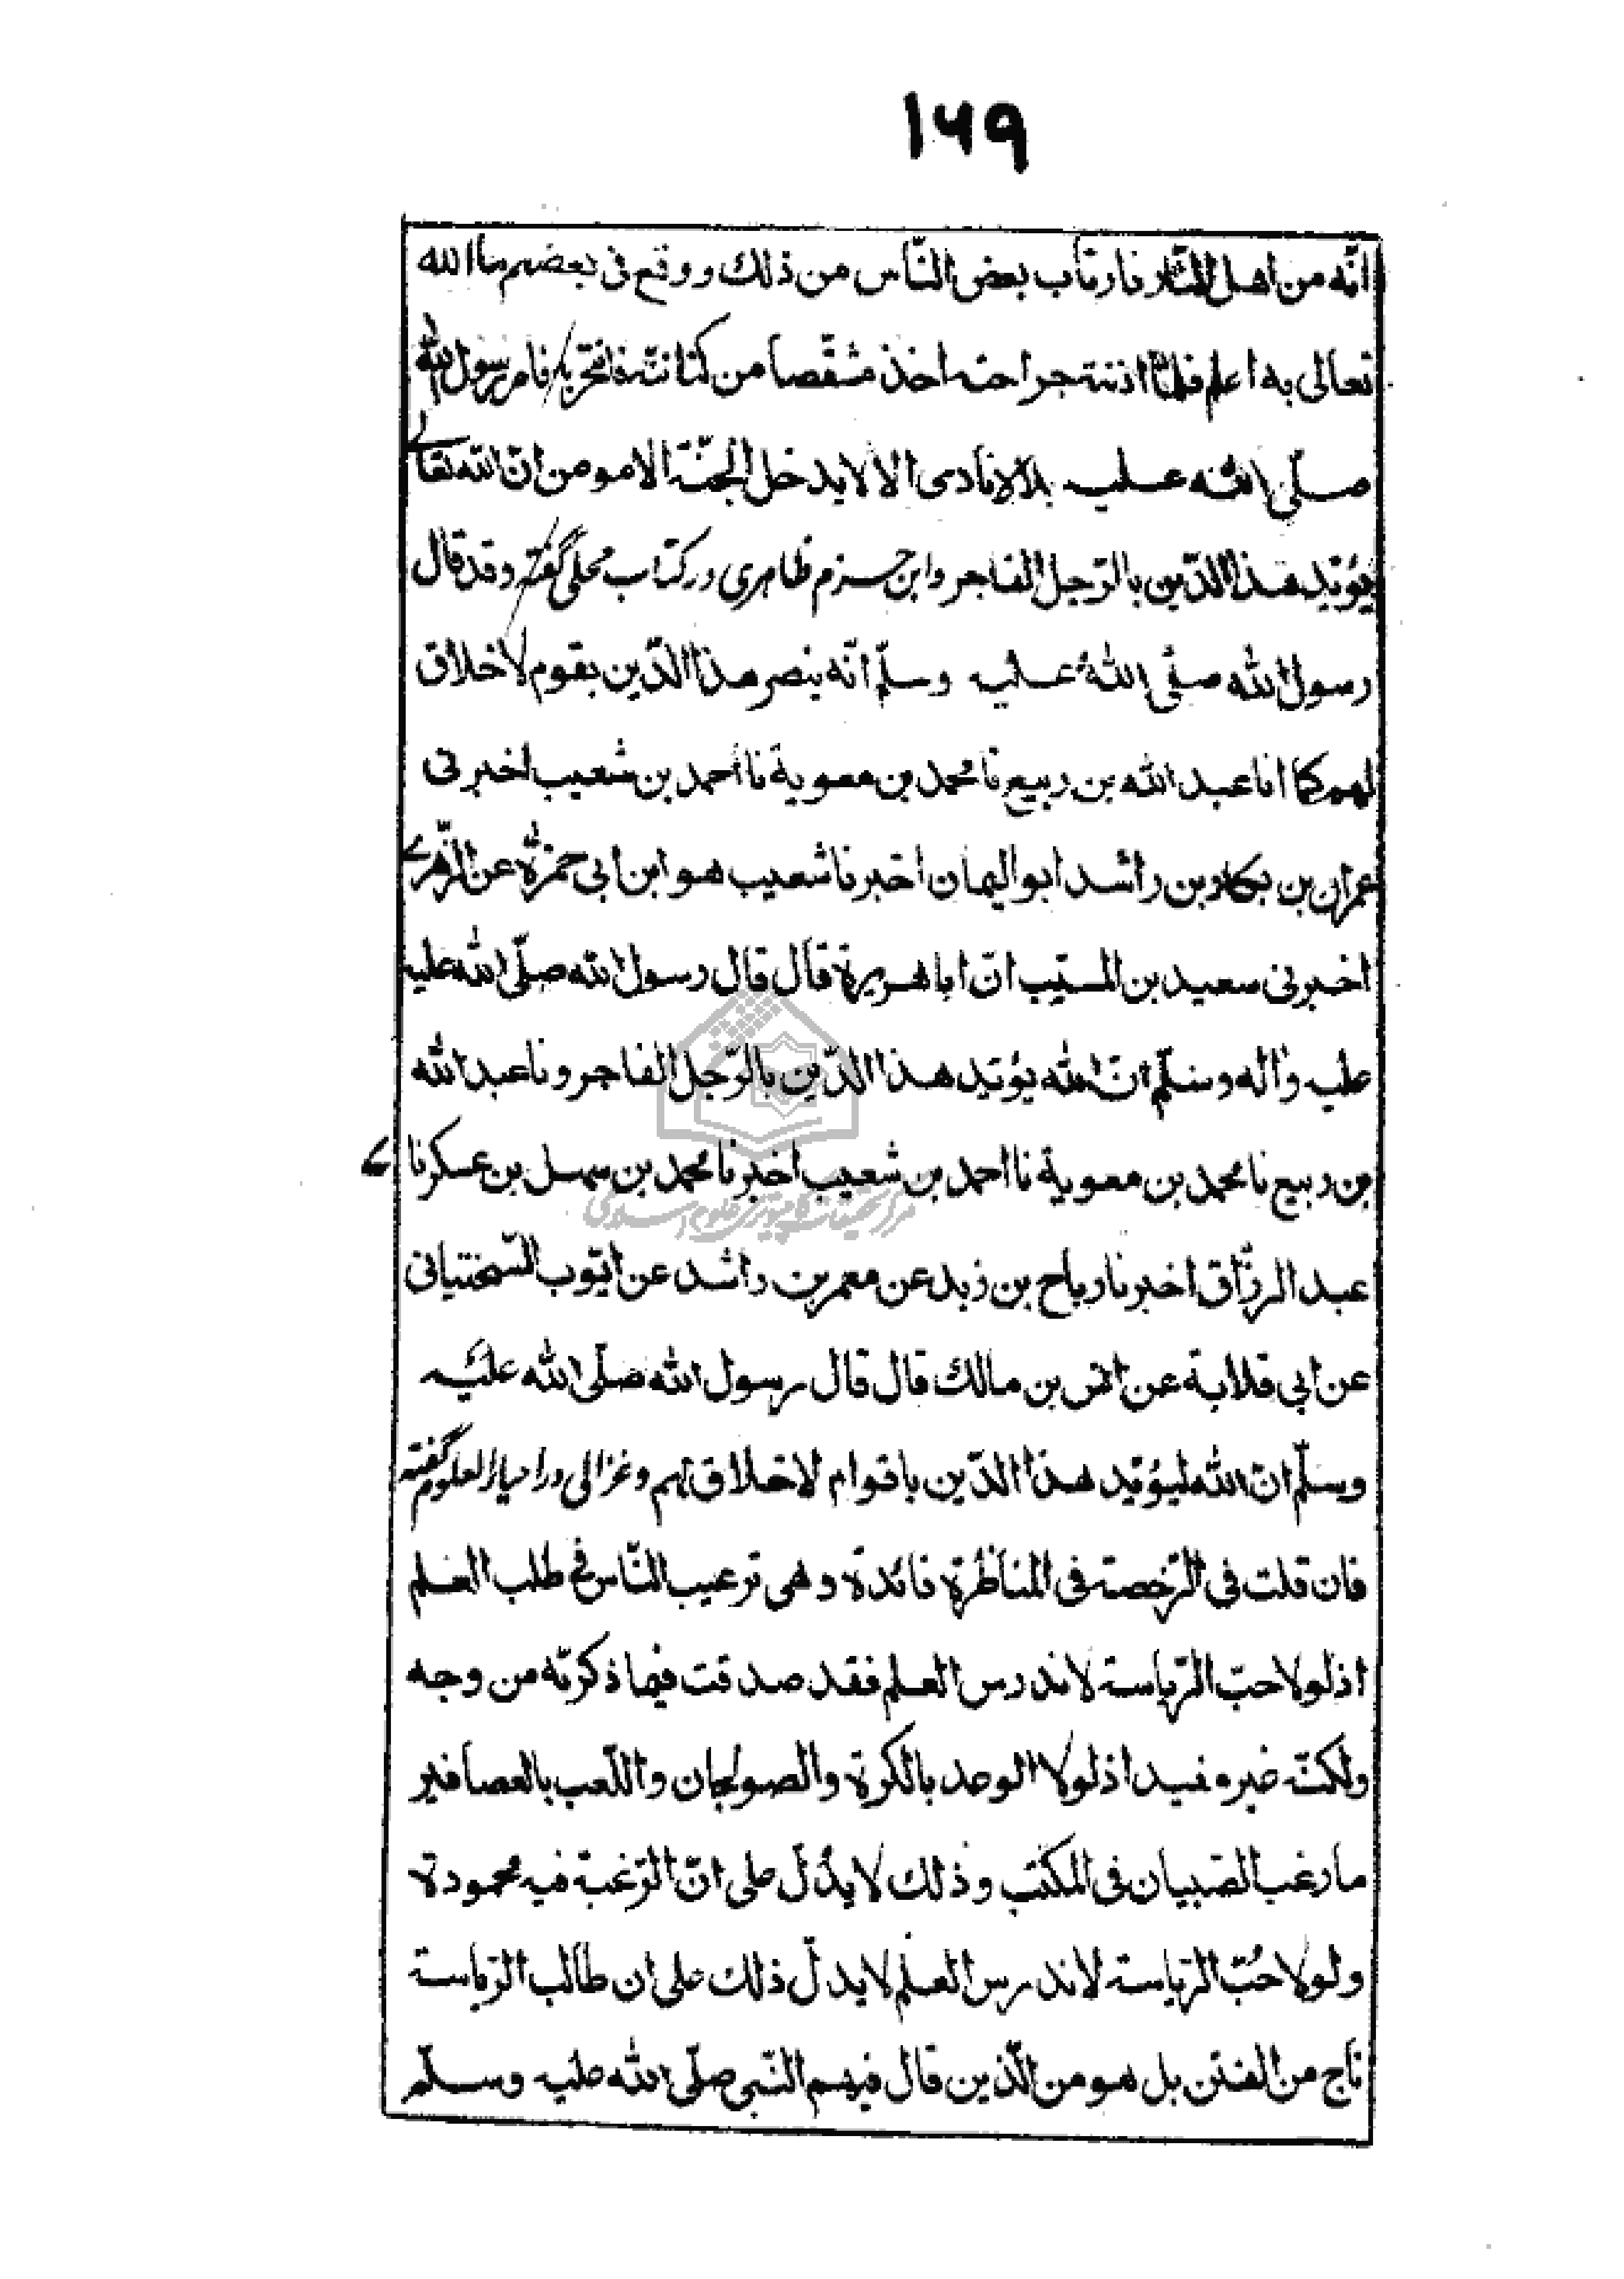 ۱۶۹
انّه من اهل النّار فارتاب بعض النّاس من ذلك ووقع فی بعضهم ما الله
تعالی به اعلم فلمّا اذته جراحته اخذ مشقصا من كنانته فانتحر به فامر رسول الله
صلّی الله علیه بلالا نادی الا لا یدخل الجنّة الا مومن انّ الله تعالے
یؤیّد هذا الدّین بالرّجل الفاجر وابن حزم ظاهری در كتاب محلی گفته وقد قال
رسول الله صلّی الله علیه وسلّم انّه ینصر هذا الدّین بقوم لا خلاق
لهم كما انا عبد الله بن ربیع نا محمد بن معویة نا أحمد بن شعیب اخبرنی
عمران بن بكار بن راشد ابو الیمان اخبرنا شعیب هو ابن ابی حمزة عن الزّهرے
اخبرنی سعید بن المسیّب انّ ابا هریرة قال قال رسول الله صلّی الله علیه
علیه واله وسلّم انّ الله یؤیّد هذا الدّین بالرّجل الفاجر ونا عبد الله
بن ربیع نا محمد بن معویة نا احمد بن شعیب اخبرنا محمد بن سهل بن عسكر نا
عبد الرزّاق اخبرنا رباح بن زید عن معمر بن راشد عن ایّوب السّختیانی
عن ابی قلابة عن انس بن مالك قال قال رسول الله صلّی الله علیه
وسلّم انّ الله لیؤیّد هذا الدّین باقوام لا خلاق لهم وغزالی در احیاء العلوم گفته
فان قلت فی الرّخصة فی المناظرة فائدة وهی ترغیب النّاس فی طلب العلم
اذ لولا حبّ الرّیاسة لاندرس العلم فقد صدقت فیما ذكرته من وجه
ولكنّه غیر مفید اذ لولا الوعد بالكرة والصولجان واللّعب بالعصافیر
ما رغب الصّبیان فی المكتب وذلك لا یدلّ علی انّ الرّغبة فیه محمودة
ولولا حبّ الرّیاسة لاندرس العلم لا یدلّ ذلك علی ان طالب الرّیاسة
ناج من الفتن بل هو من الّذین قال فیهم النّبی صلّی الله علیه وسلّم
مرکز تحقیقات کامپیوتری علوم اسلامی